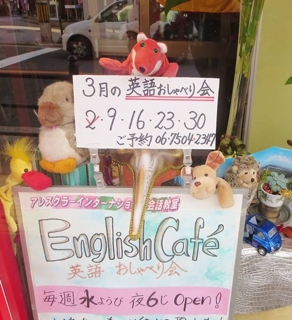 3月の英語おしゃべり会
2・9・16・23・30
ご予約 06-7504-2317
アレスクラーインターナショ 会話教室
English Café
英語 おしゃべり会
毎週水ようび 夜6じ Open!